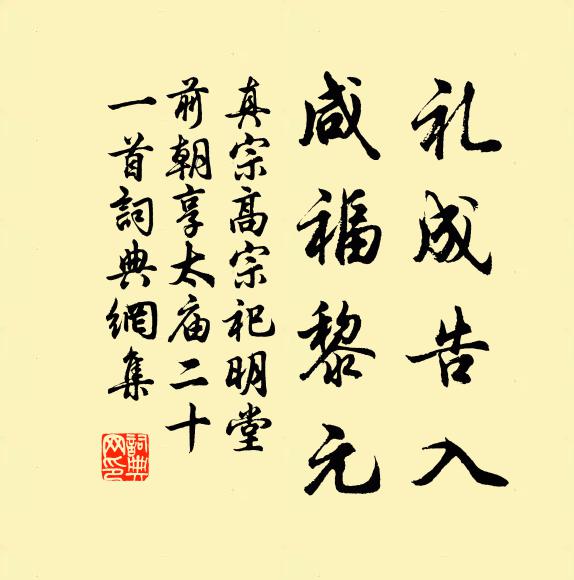 礼成告入
咸福黎元
真宗高宗祀明堂
前朝享太庙二十
一首詞典網集
詞典
网印